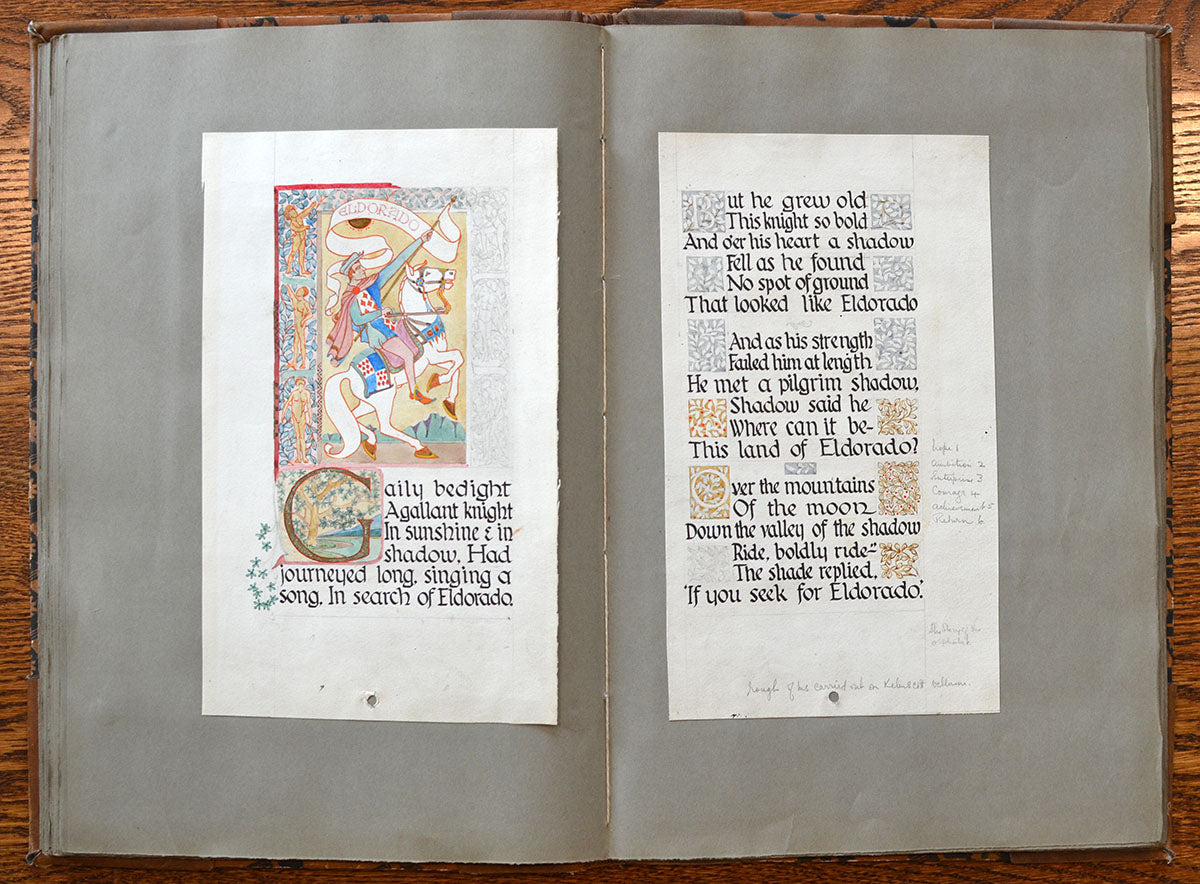 ELDORADO
Gaily bedight
A gallant knight
In sunshine & in
shadow. Had
journeyed long, singing a
song, In search of Eldorado.
But he grew old
This knight so bold
And o'er his heart a shadow
Fell as he found
No spot of ground
That looked like Eldorado
And as his strength
Failed him at length
He met a pilgrim shadow,
Shadow said he
Where can it be-
This land of Eldorado?
Over the mountains
Of the moon
Down the valley of the shadow
Ride, boldly ride-"
The shade replied,
'If you seek for Eldorado.'
hope 1
Ambition 2
Enterprise 3
Courage 4
Achievement 5
Return 6
The Story of the
rough of his carried out on Kelmscott vellum.